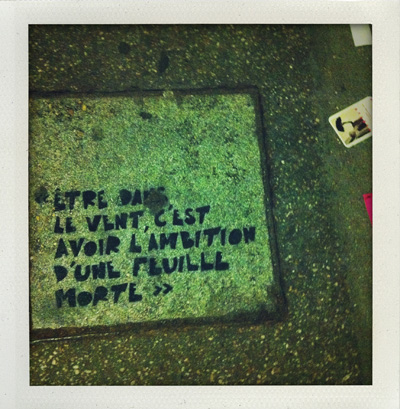 «ÊTRE DANS
LE VENT, C'EST
AVOIR L'AMBITION
D'UNE FEUILLE
MORTE »